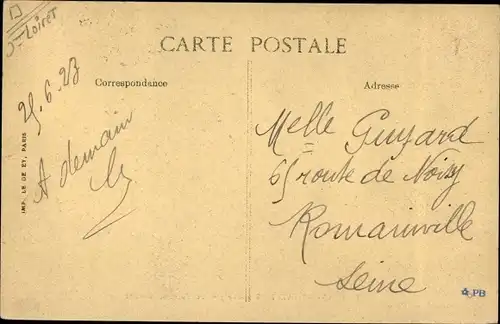 D
Dt Loiret
CARTE POSTALE
Correspondance
Adresse
25.6.23
A demain
Melle Guyard
65 route de Noisy
Romainville
Seine
IMP. LE DE EY, PARIS
PB